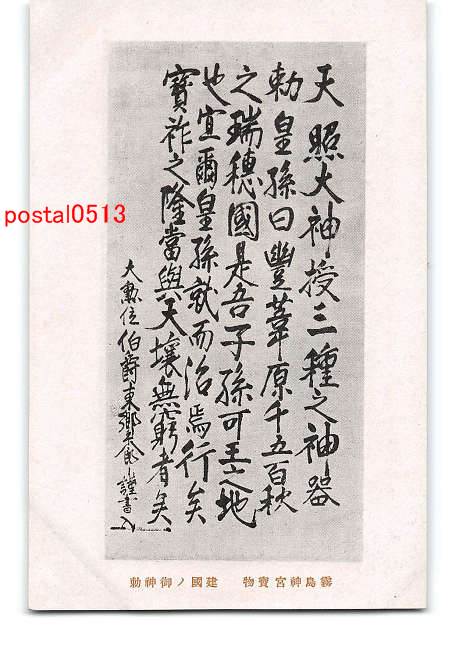 天照大神授三種之神器
勅皇孫曰豐葦原千五百秋
之瑞穗國是吾子孫可王之地
也宜爾皇孫就而治焉行矣
寶祚之隆當與天壤無窮者矣
大勲位伯爵東郷平八郎謹書
postal0513
霧島神宮寶物 建國ノ御神勅